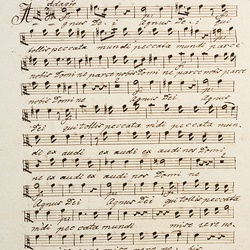 adagio
Agnus Dei Agnus Dei qui
tollis peccata mundi peccata mundi parce
nobis Domine parce nobis Domine parce nobis
nobis Domine Agnus
Dei qui tollis peccata mundi peccata mun,
di ex audi ex audi nos Domi,
ne ex audi ex audi nos Domi ne
Agnus Dei Agnus Dei qui
pec cata mundi mise rere no,